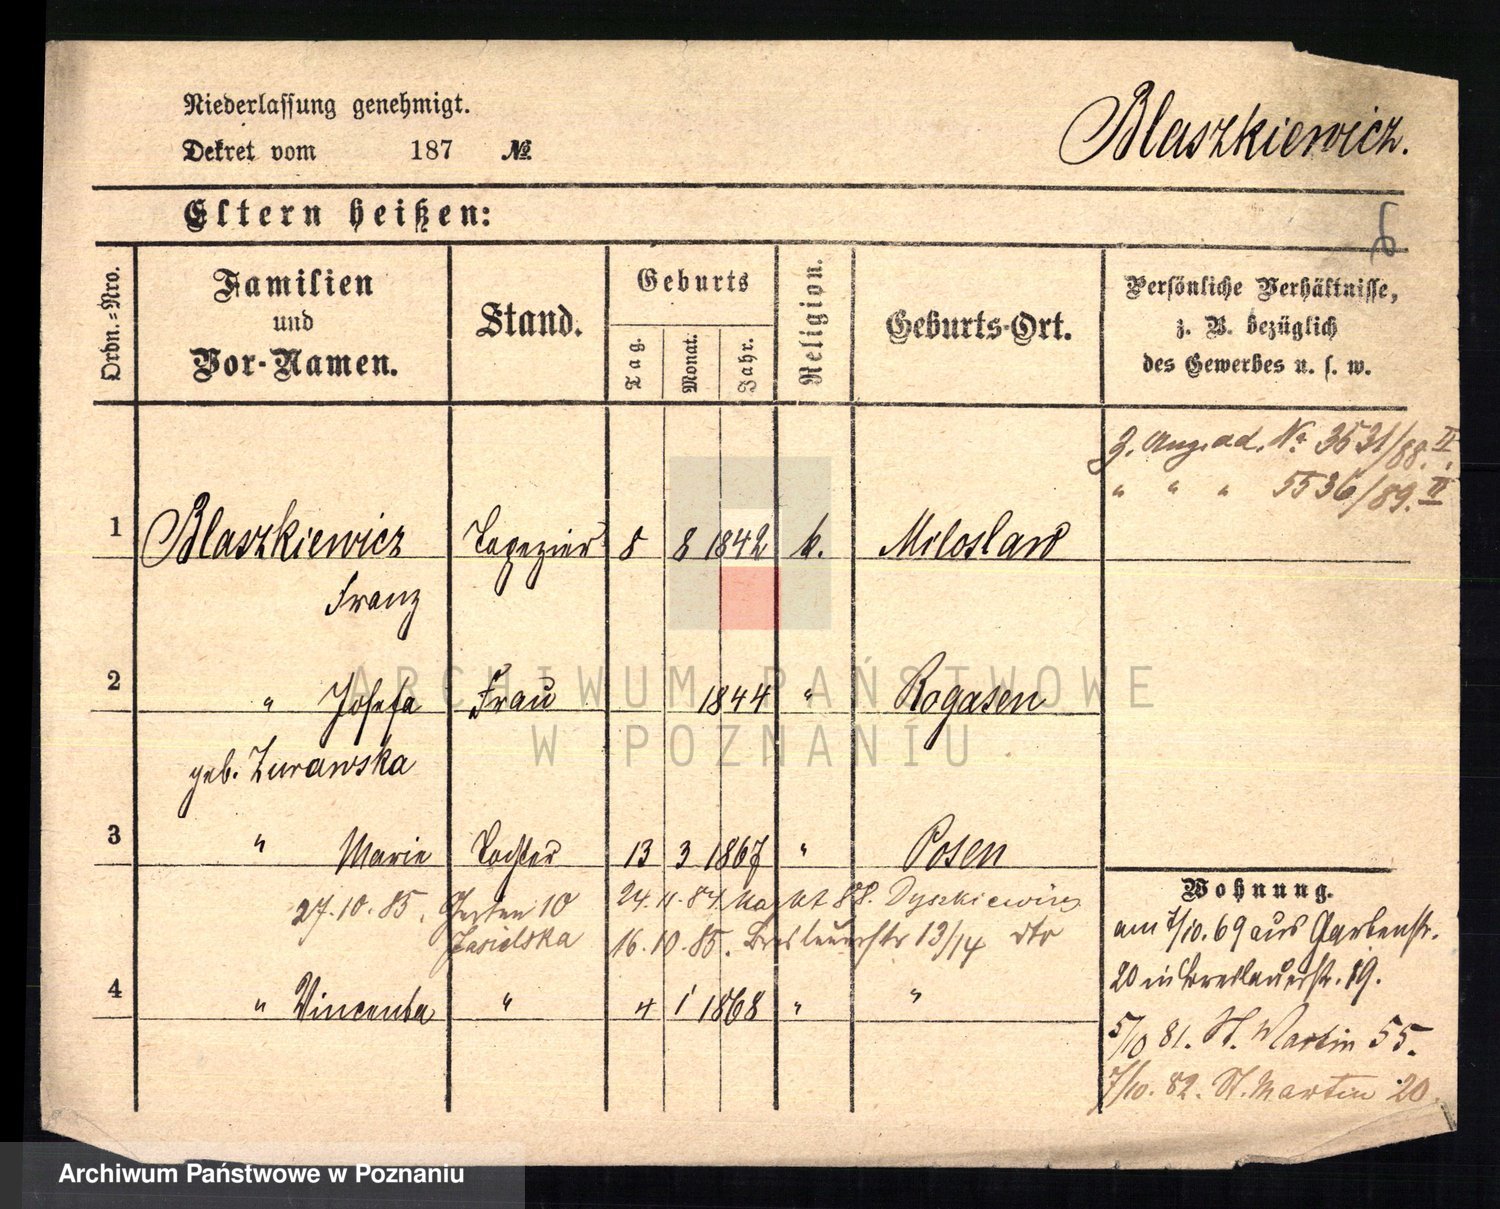 Niederlassung genehmigt.
Dekret vom 187 №
Blaszkiewicz.
Eltern heißen:
Ordn.=Nro.
Familien
und
Vor-Namen.
Stand.
Geburts
Tag.
Monat.
Jahr.
Religion.
Geburts-Ort.
Persönliche Verhältnisse,
z. B. bezüglich
des Gewerbes u. s. w.
No 3531/88. II.
" " " 5536/89. II
1 Blaszkiewicz Tapezier 8 8 1842 k. Miloslaw
Franz
2 " Josefa Frau 1844 " Rogasen
geb. Zurawska
3 " Marie Tochter 13 3 1867 " Posen
27.10.85. Gerten 10 24.11.84 88. Dyszkiewicz
Jasielska 16.10.85. Breslauerstr 13/14 dto
4 " Vincenta " 4 1 1868 " "
Wohnung.
am 7/10.69 aus Gartenstr.
20 in Breslauerstr. 19.
5/10 81. St. Martin 55.
7/10. 82. St. Martin 20.
ARCHIWUM PAŃSTWOWE
W POZNANIU
Archiwum Państwowe w Poznaniu